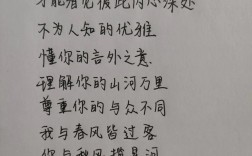 才能看见彼此内心深处
不为人知的优雅
懂你的言外之意
理解你的山河万里
尊重你的与众不同
我与春风皆过客
你与秋风揽星河